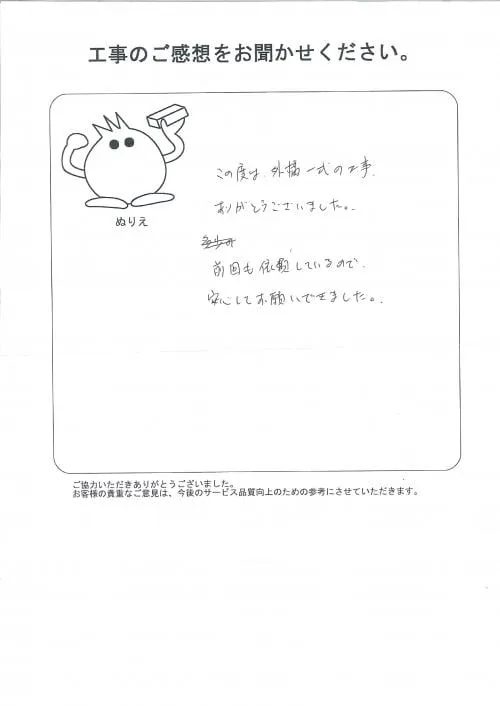 工事のご感想をお聞かせください。
ぬりえ
この度は、外構一式の工事、
ありがとうございました。
前回も依頼しているので、
安心してお願いできました。
ご協力いただきありがとうございました。
お客様の貴重なご意見は、今後のサービス品質向上のための参考にさせていただきます。